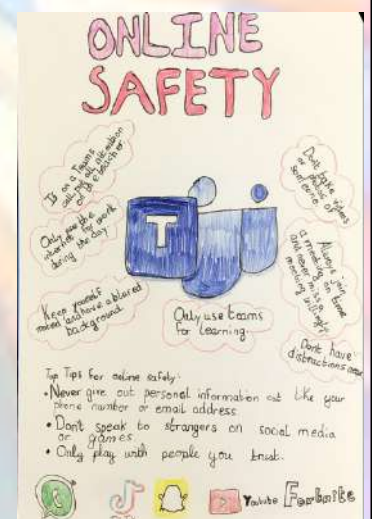 ONLINE
SAFETY
If on a Teams
call put all attention
at the teacher.
Only use the
internet for work
during the day
Keep yourself
muted and have a blured
background
T
Only use teams
for learning.
Don't take videos
or photos of
someone
Always join
a meeting on time
and never miss a
meeting
Dont have
distractions
Top Tips For online safety:
• Never give out personal information out like your
phone number or email address
• Don't speak to strangers on social media
or games
• Only play with people you trust.
Youtube Fortnite